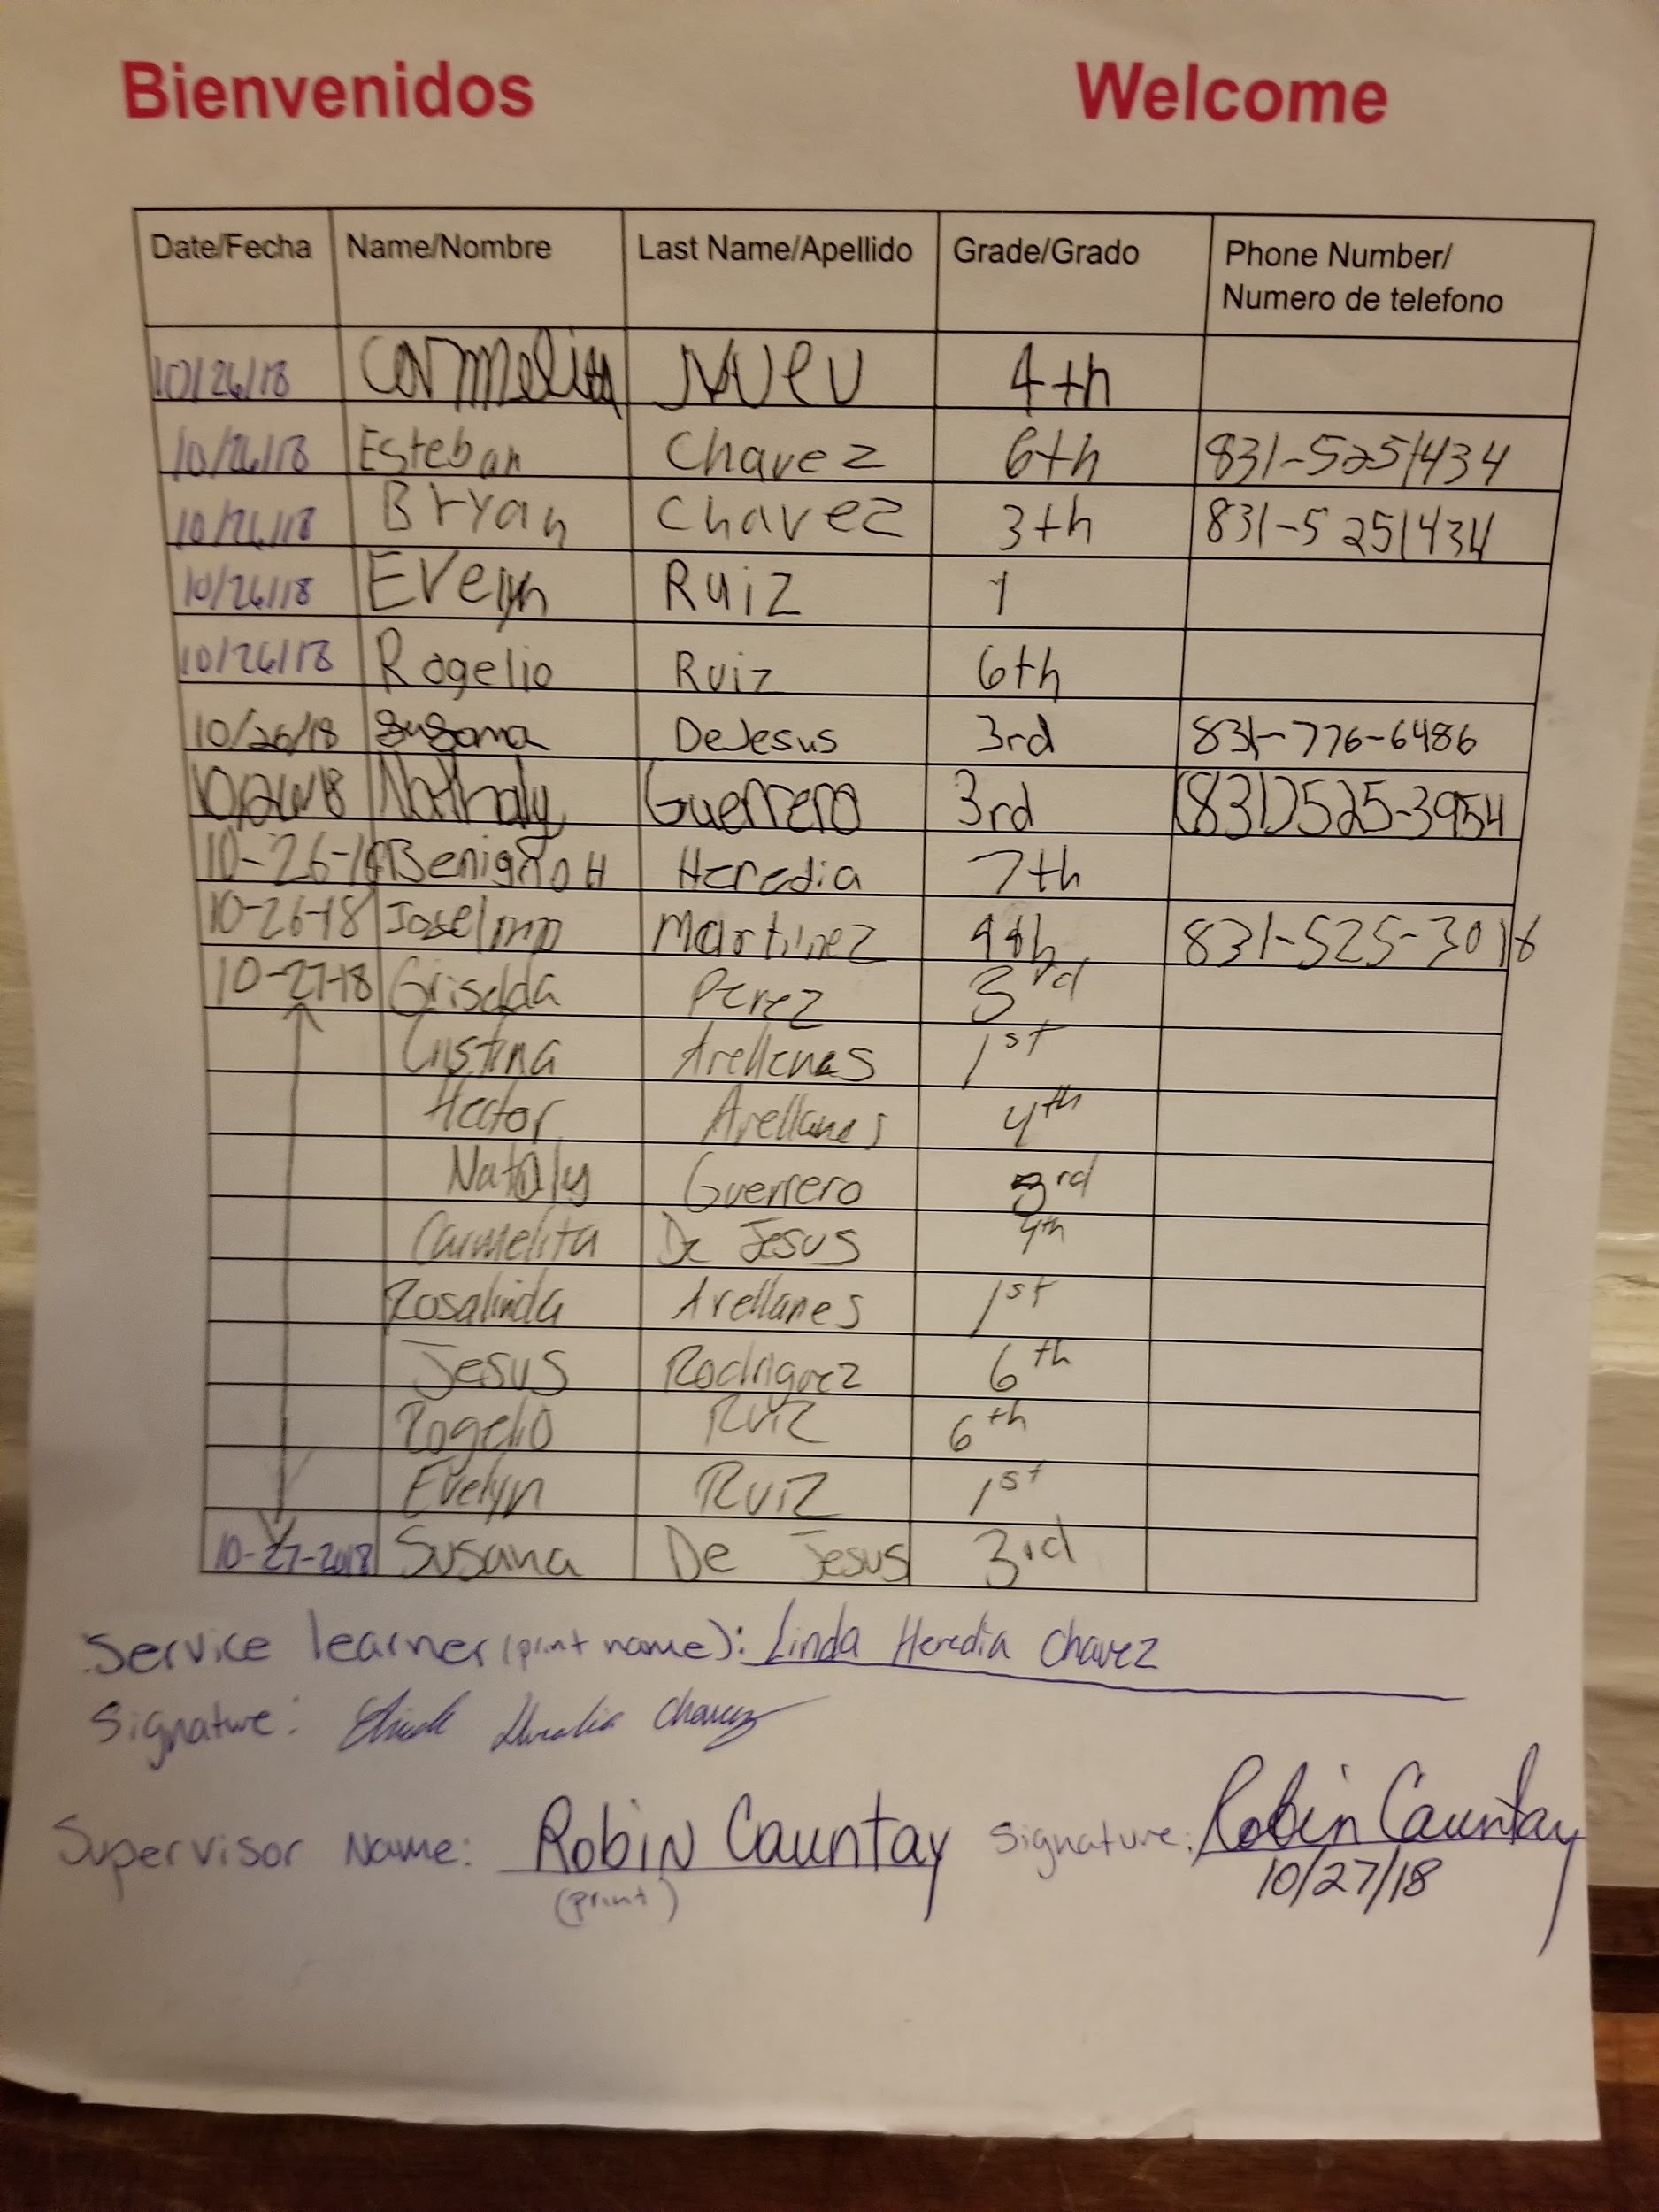 Bienvenidos Welcome
Date/Fecha Name/Nombre Last Name/Apellido Grade/Grado Phone Number/
Numero de telefono
10/26/18 Carmelita 4th
10/26/18 Esteban Chavez 6th 831-5251434
10/26/18 Bryan Chavez 3th 831-5251434
10/26/18 Evelyn Ruiz 1
10/26/18 Rogelio Ruiz 6th
10/26/18 Susana DeJesus 3rd 831-776-6486
10/26/18 Nathaly Guerrero 3rd (831)525-3954
10-26-18 Benigno H Heredia 7th
10-26-18 Martinez 4th 831-525-3018
10-27-18 Griselda Perez 3rd
Cristina Arellanes 1st
Hector Arellanes 4th
Nataly Guerrero 3rd
Carmelita De Jesus 4th
Rosalinda Arellanes 1st
Jesus Rodriguez 6th
Rogelio Ruiz 6th
Evelyn Ruiz 1st
10-27-2018 Susana De Jesus 3rd
Service learner (print name): Linda Heredia Chavez
Signature: Linda Heredia Chavez
Supervisor Name: Robin Cauntay Signature: Robin Cauntay
(print) 10/27/18